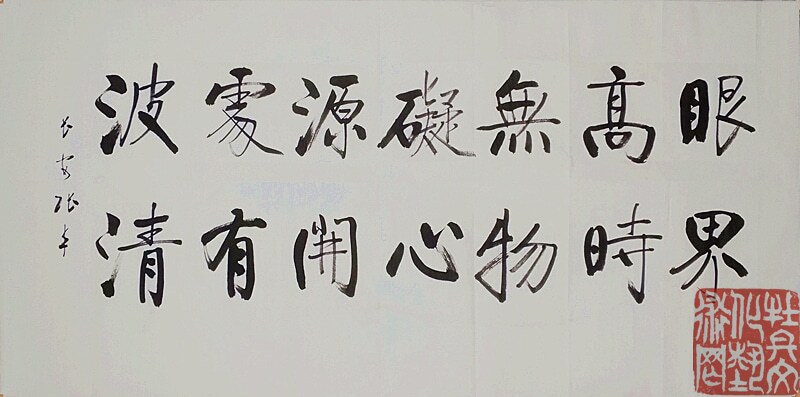 眼界
高時
無物
礙心
源開
處有
波清
长安张